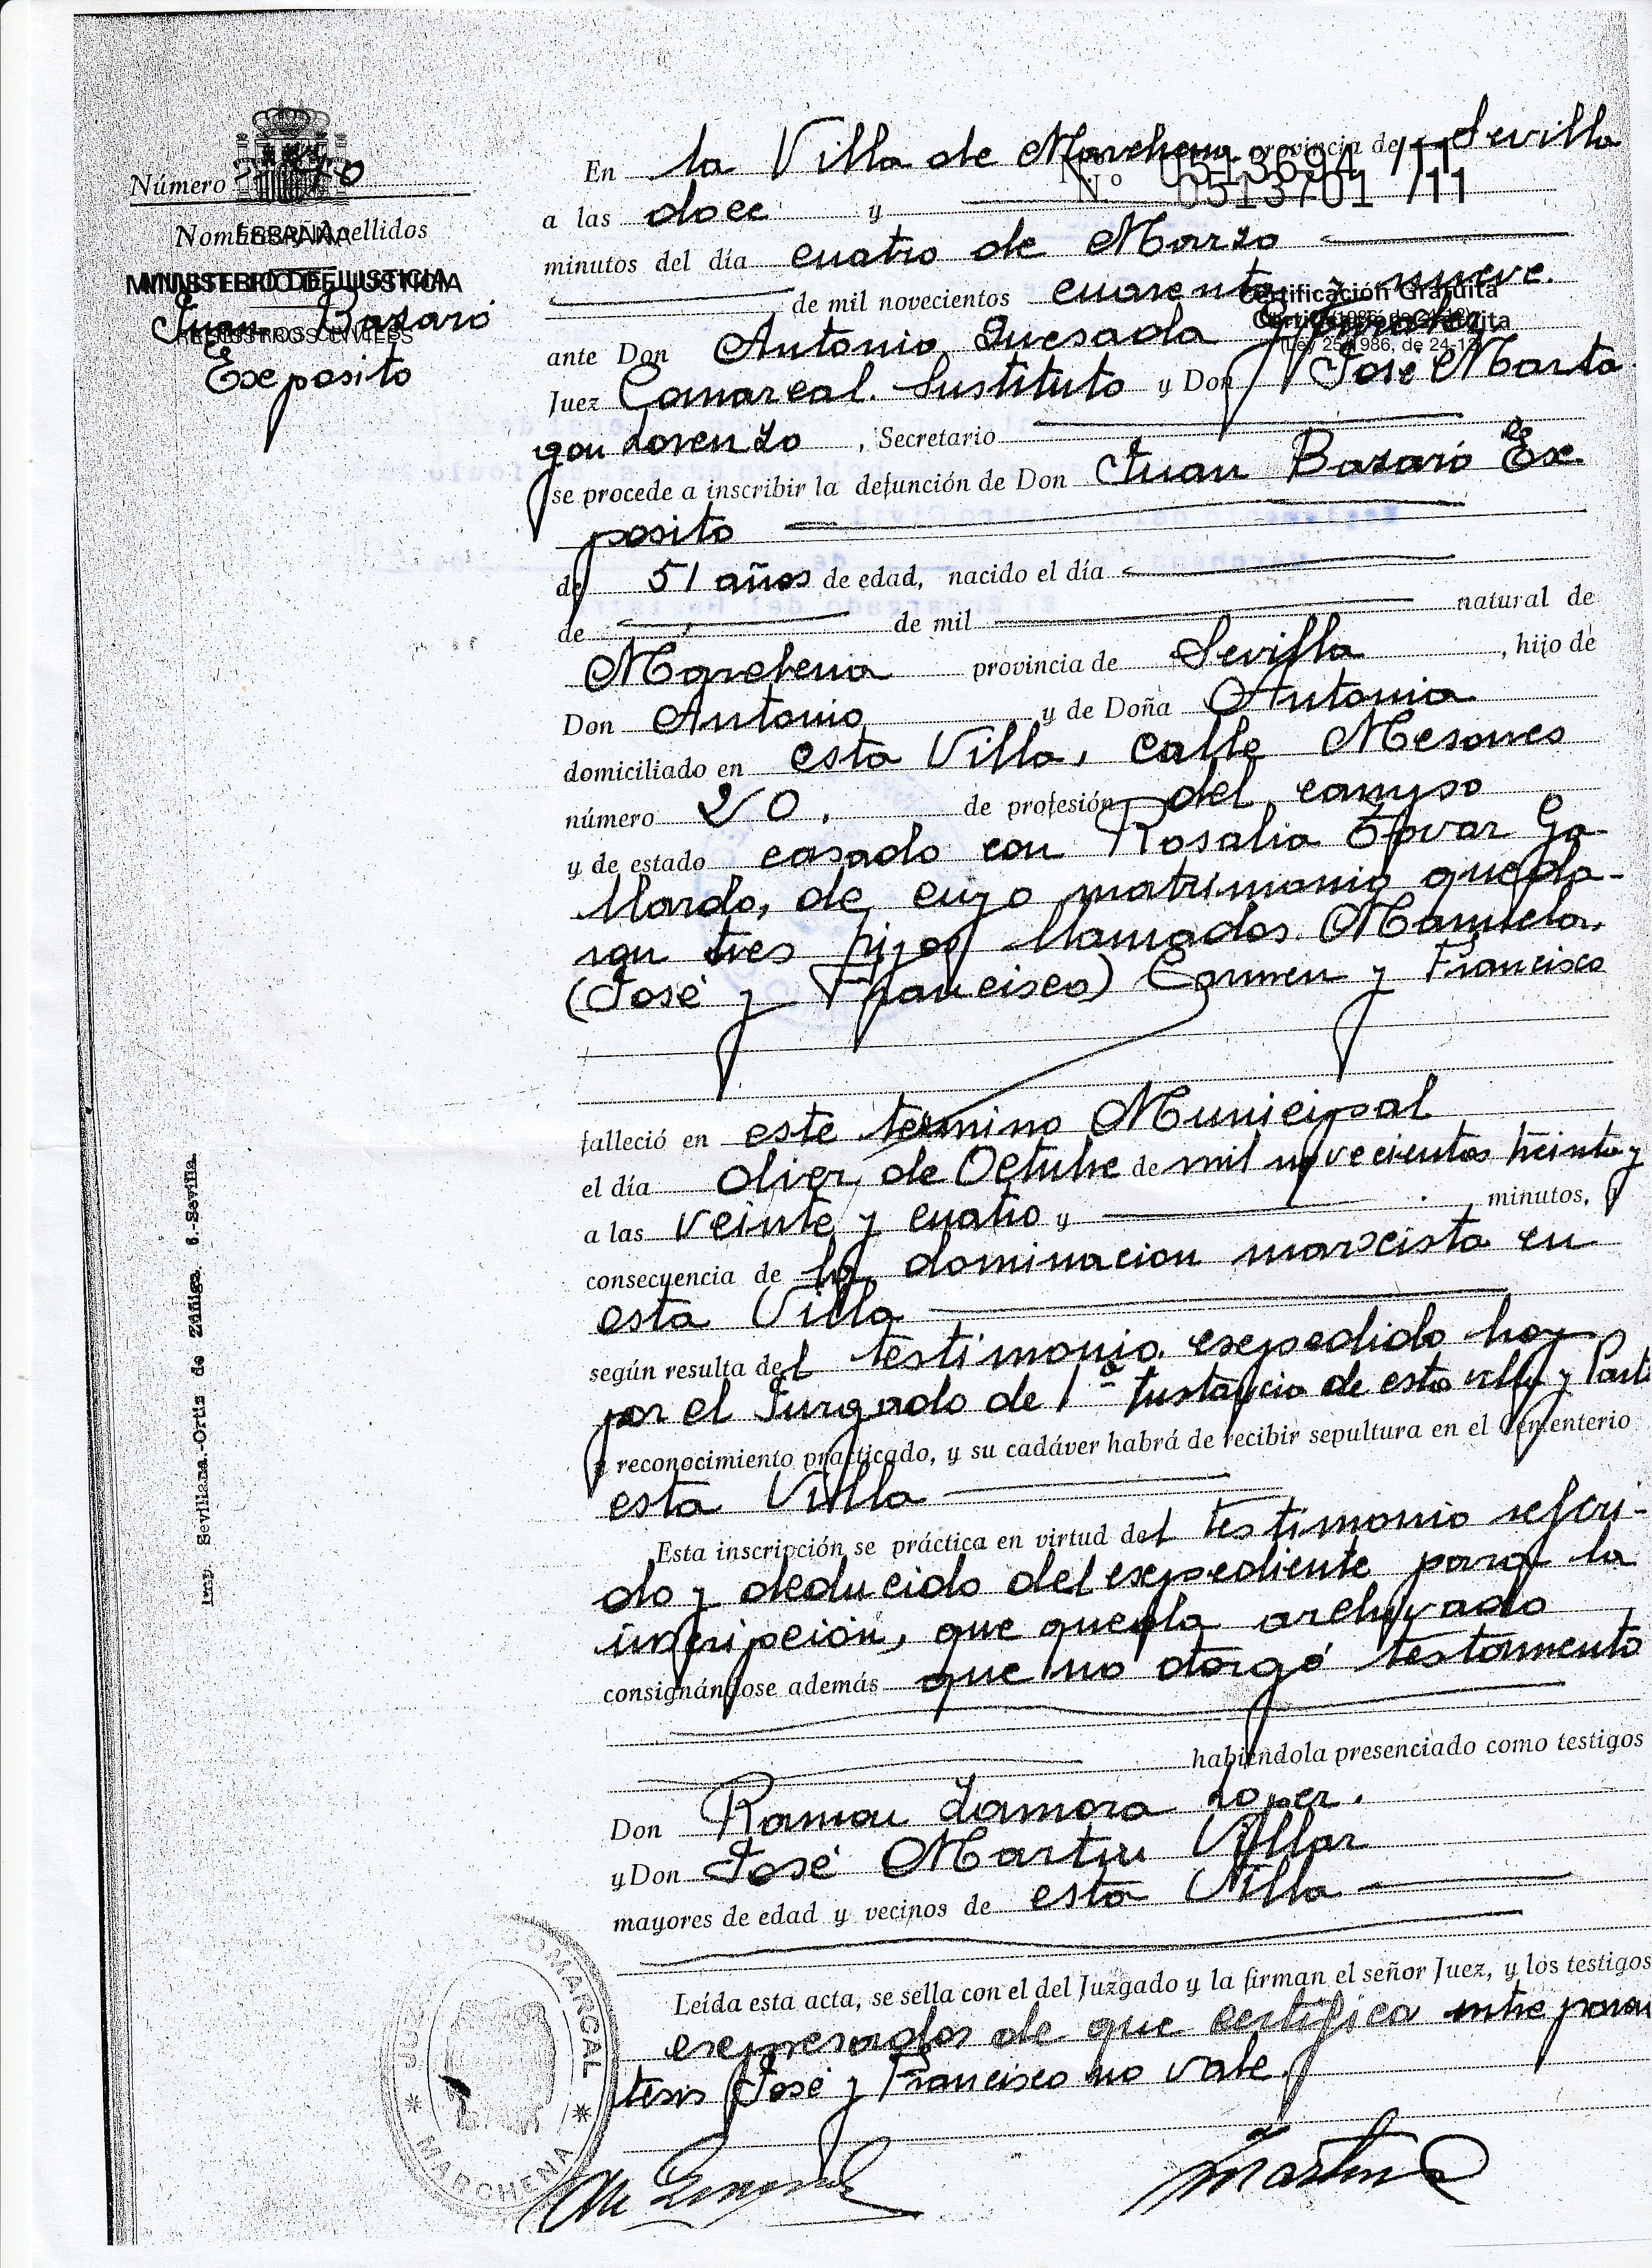 Número
ESPAÑA
Nombre y Apellidos
MINISTERIO DE JUSTICIA
REGISTROS CIVILES
Juan Bazaró
Exposito
En la Villa de Marchena provincia de Sevilla
Nº 0513694 /11
Nº 0513701 /11
a las doce y
minutos del día cuatro de Marzo
de mil novecientos cuarenta y nueve.
Certificación Gratuita
Certificación Gratuita
(Ley 25/1986, de 24-12)
ante Don Antonio Quesada
Juez Comarcal. Sustituto y Don José Marta
gon Lorenzo, Secretario
se procede a inscribir la defunción de Don Juan Bazaró Ex
posito
de 51 años de edad, nacido el día
de de mil natural de
Marchena provincia de Sevilla, hijo de
Don Antonio y de Doña Antonia
domiciliado en esta Villa, calle Mesones
número 20. de profesión del campo
y de estado casado con Rosalia Tovar Ga-
llardo, de cuyo matrimonio queda-
ron tres hijos llamados. Manuela,
(José y Francisco) Carmen y Francisco
falleció en este termino Municipal
el día diez de Octubre de mil novecientos treinta y
a las veinte y cuatro y minutos,
consecuencia de la dominacion marxista en
esta Villa
según resulta del testimonio expedido hoy
por el Juzgado de 1ª Instancia de esta villa y Parti
reconocimiento practicado, y su cadáver habrá de recibir sepultura en el Cementerio
esta Villa
Esta inscripción se práctica en virtud del testimonio referi-
do y deducido del expediente para la
inscripción, que queda archivado
consignándose además que no otorgó testamento
habiéndola presenciado como testigos
Don Ramon Zamora Lopez.
y Don José Martin Villar
mayores de edad y vecinos de esta Villa
Leída esta acta, se sella con el del Juzgado y la firman el señor Juez, y los testigos
expresados de que certifico entre paren
tesis José y Francisco no vale.
COMARCAL
MARCHENA
Imp. Sevillana.-Ortiz de Zúñiga. 6.-Sevilla.